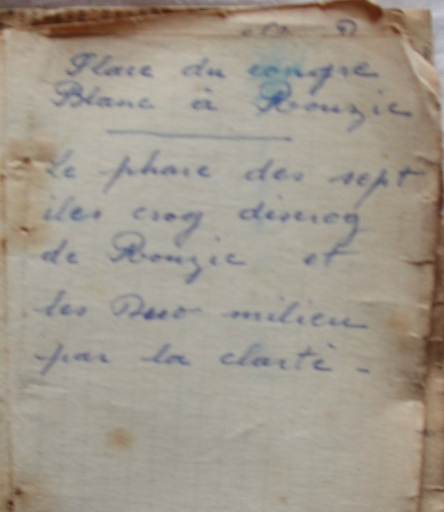 Place du congre
Blanc à Rouzic
Le phare des sept
iles croq discroq
de Rouzic et
les Duo milieu
par la clarté -